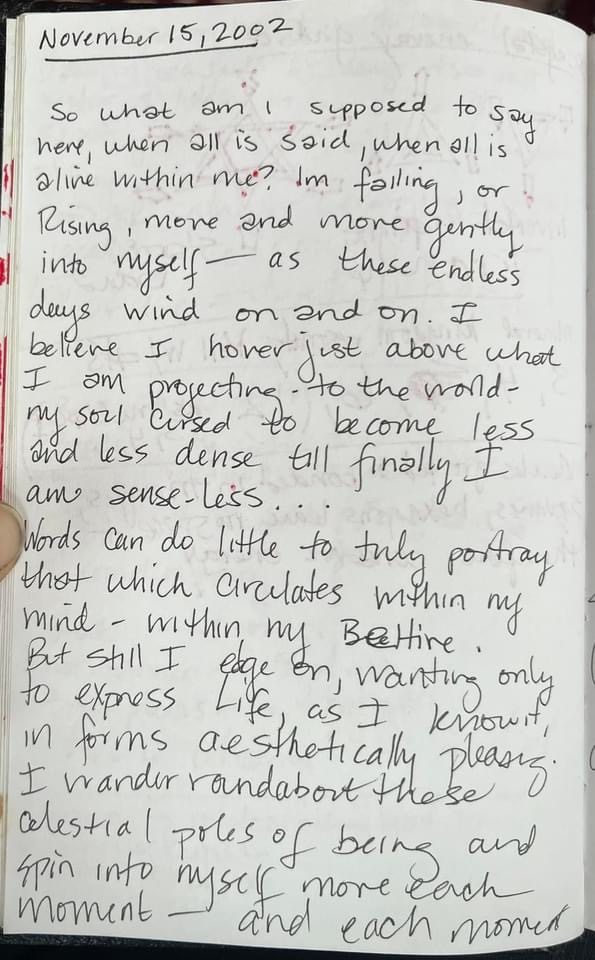 November 15, 2002
So what am I supposed to say
here, when all is said, when all is
alive within me? Im falling, or
Rising, more and more gently
into myself — as these endless
days wind on and on. I
believe I hover just above what
I am projecting - to the world -
my soul cursed to become less
and less dense till finally I
am sense-less....
Words can do little to truly portray
that which circulates within my
mind - within my BeHive.
But still I edge on, wanting only
to express Life, as I know it,
in forms aesthetically pleasing.
I wander roundabout these
celestial poles of being and
spin into myself more each
moment — and each moment